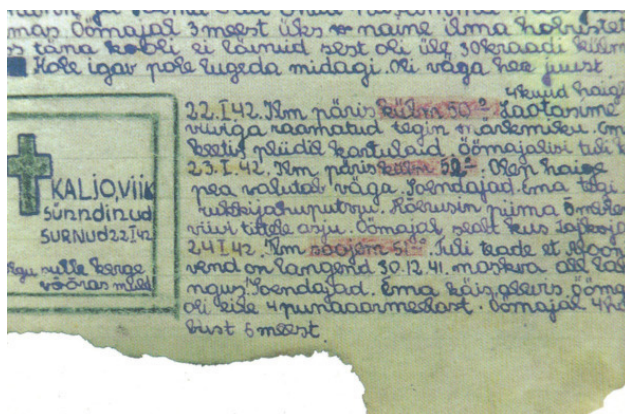 mas Öömajal 3 meest üks naine ilma hobustet
s täna kooli ei läinuid sest oli üle 30 kraadi külm
Hole igav pole lugeda midagi. Oli väga hee juust
4 kuud haige
22.I.42. Ilm päris külm 50° Laotasime
viiviga raamatud tegin märkmiku. Em
keetis pliidil kartulaid öömajalisi tuli k
23.I.42. Ilm päris külm 52°. Olen haige
pea valutab väga. Soendajad. Ema tegi
rukkijahuputru. piima
viivi tittele asju. Öömajal sealt kus
24.I.42. Ilm soojem 51° Tuli teade et
vend on langend 30.12.41. maskva all lah
ngus! Soendajad. Ema käis
oli 4 punaaarmeelast. Öömajal 4 ho
bust 6 meest.
KALJO, VIIK
SÜNNDINUD
SURNUD 22 I 42
lgu sulle kerge
vööras muld